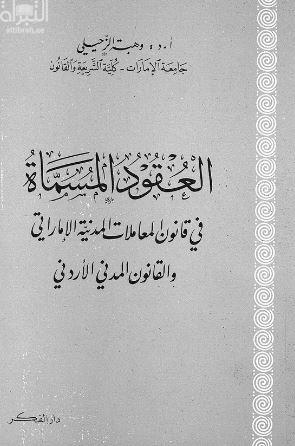 النيل والفرات
attibrah.ae
ا. د. وهبة الزحيلي
جامعة الإمارات - كلية الشريعة والقانون
العقود المسماة
في قانون المعاملات المدنية الإماراتي
والقانون المدني الأردني
دار الفكر